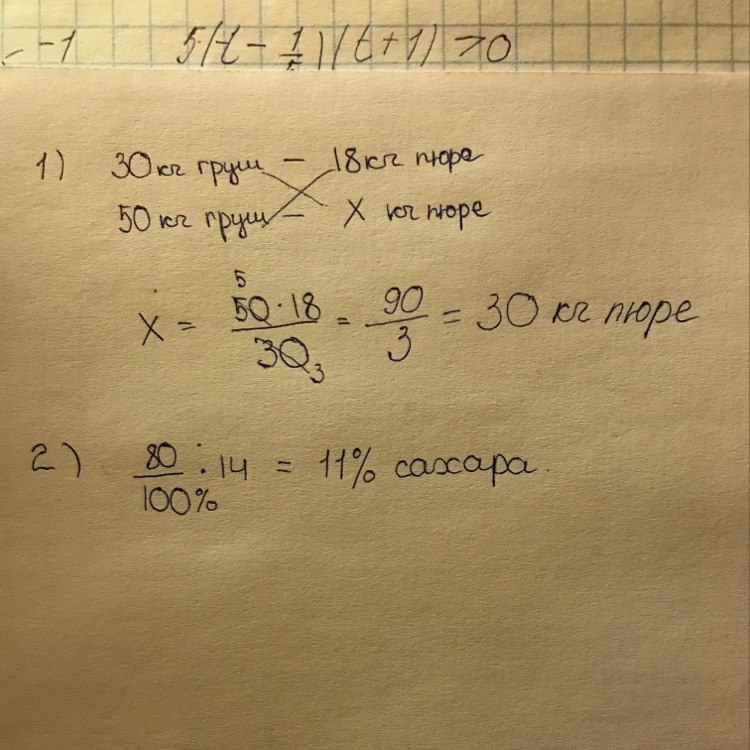 -1 5(t - 1/5)(t + 1) > 0
1) 30 кг груш — 18 кг пюре
50 кг груш — X кг пюре
X = 50 · 18 / 30 = 90 / 3 = 30 кг пюре
5
3
2) 80 / 100% : 14 = 11% сахара.